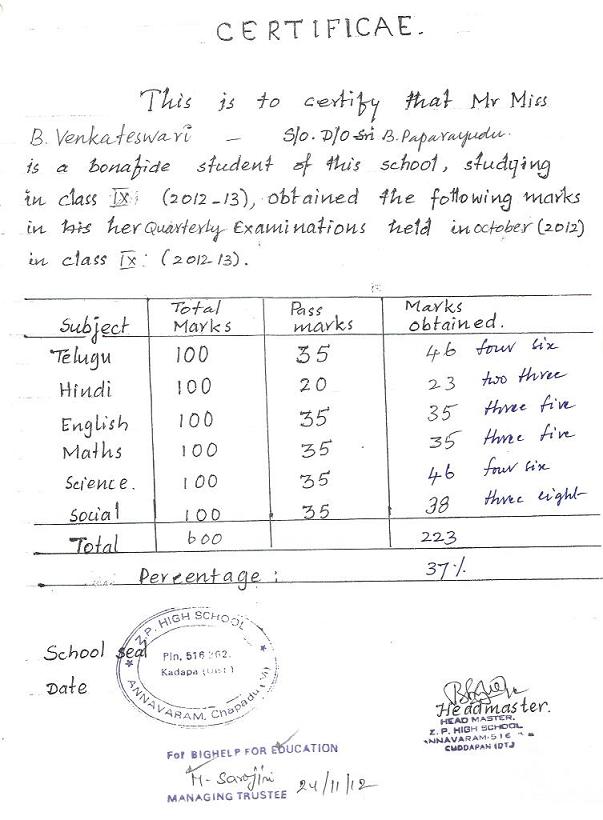 CERTIFICAE.
This is to certify that Mr Miss
B. Venkateswari - S/o. D/o Sri B. Paparayudu.
is a bonafide student of this school, studying
in class IX: (2012-13), obtained the following marks
in his her Quarterly Examinations held in october (2012)
in class IX: (2012-13).
Subject Total Marks Pass marks Marks obtained.
Telugu 100 35 46 four six
Hindi 100 20 23 two three
English 100 35 35 three five
Maths 100 35 35 three five
Science. 100 35 46 four six
Social 100 35 38 three eight
Total 600 223
Percentage : 37%
School seal
Date
Z.P. HIGH SCHOOL
Pin. 516 262.
Kadapa (Dist)
ANNAVARAM, Chapadu (M)
Headmaster.
HEAD MASTER,
Z. P. HIGH SCHOOL
ANNAVARAM-516
CUDDAPAH (DT)
For BIGHELP FOR EDUCATION
M. Sarojini 24/11/12
MANAGING TRUSTEE